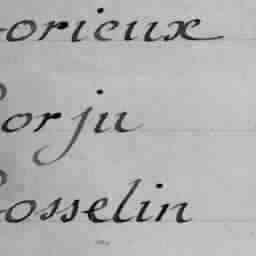 orieux
orju
osselin